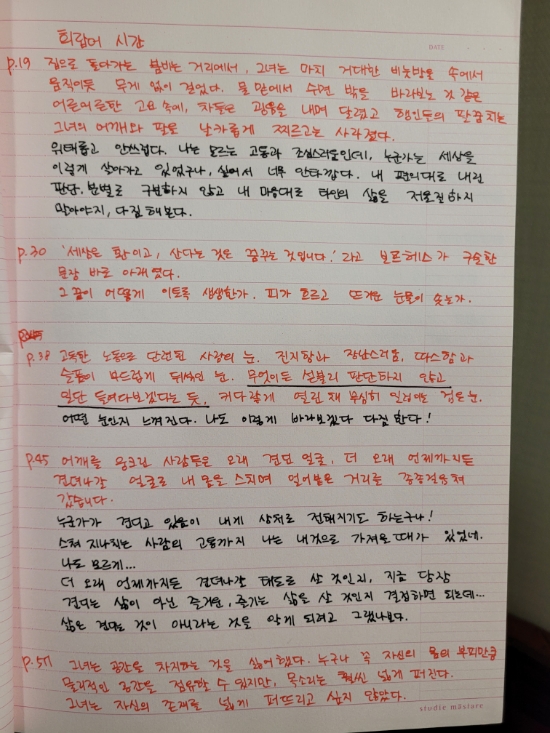 희랍어 시간
DATE
p.19 집으로 돌아가는 붐비는 거리에서, 그녀는 마치 거대한 비눗방울 속에서
움직이듯 무게 없이 걸었다. 물 밑에서 수면 밖을 바라보는 것 같은
어른어른한 고요 속에, 차들은 굉음을 내며 달렸고 행인들의 팔꿈치는
그녀의 어깨와 팔을 날카롭게 찌르고는 사라졌다.
위태롭고 안쓰럽다. 나는 모르는 고통과 조심스러움인데, 누군가는 세상을
이렇게 살아가고 있었구나, 싶어서 너무 안타깝다. 내 편의대로 내린
판단, 분별로 구분하지 않고 내 마음대로 타인의 삶을 저울질하지
말아야지, 다짐해본다.
p.30 '세상은 환이고, 산다는 것은 꿈꾸는 것입니다.' 라고 보르헤스가 구술한
문장 바로 아래였다.
그 꿈이 어떻게 이토록 생생한가. 피가 흐르고 뜨거운 눈물이 솟는가.
p.38 고독한 노동으로 단련된 사람의 눈. 진지함과 장난스러움, 따스함과
슬픔이 부드럽게 뒤섞인 눈. 무엇이든 섣불리 판단하지 않고
일단 들여다보겠다는 듯, 커다랗게 열린 채 무심히 일렁이는 검은 눈.
어떤 눈인지 느껴진다. 나도 이렇게 바라보겠다 다짐한다!
p.45 어깨를 웅크린 사람들은 오래 견딘 얼굴, 더 오래 언제까지든
견뎌나갈 얼굴로 내 몸을 스치며 얼어붙은 거리를 종종걸음쳐
갔습니다.
누군가가 견디고 있음이 내게 상처로 전해지기도 하는구나!
스쳐 지나치는 사람의 고통까지 나는 내것으로 가져올 때가 있었네.
나도 모르게...
더 오래 언제까지든 견뎌나갈 태도로 살 것인지, 지금 당장
견디는 삶이 아닌 즐거운, 즐기는 삶을 살 것인지 결정하면 되는데...
삶은 견디는 것이 아니라는 것을 알게 되려고 그랬나보다.
p.51 그녀는 공간을 차지하는 것을 싫어했다. 누구나 꼭 자신의 몸의 부피만큼
물리적인 공간을 점유할 수 있지만, 목소리는 훨씬 넓게 퍼진다.
그녀는 자신의 존재를 넓게 퍼뜨리고 싶지 않았다.
studio māstore